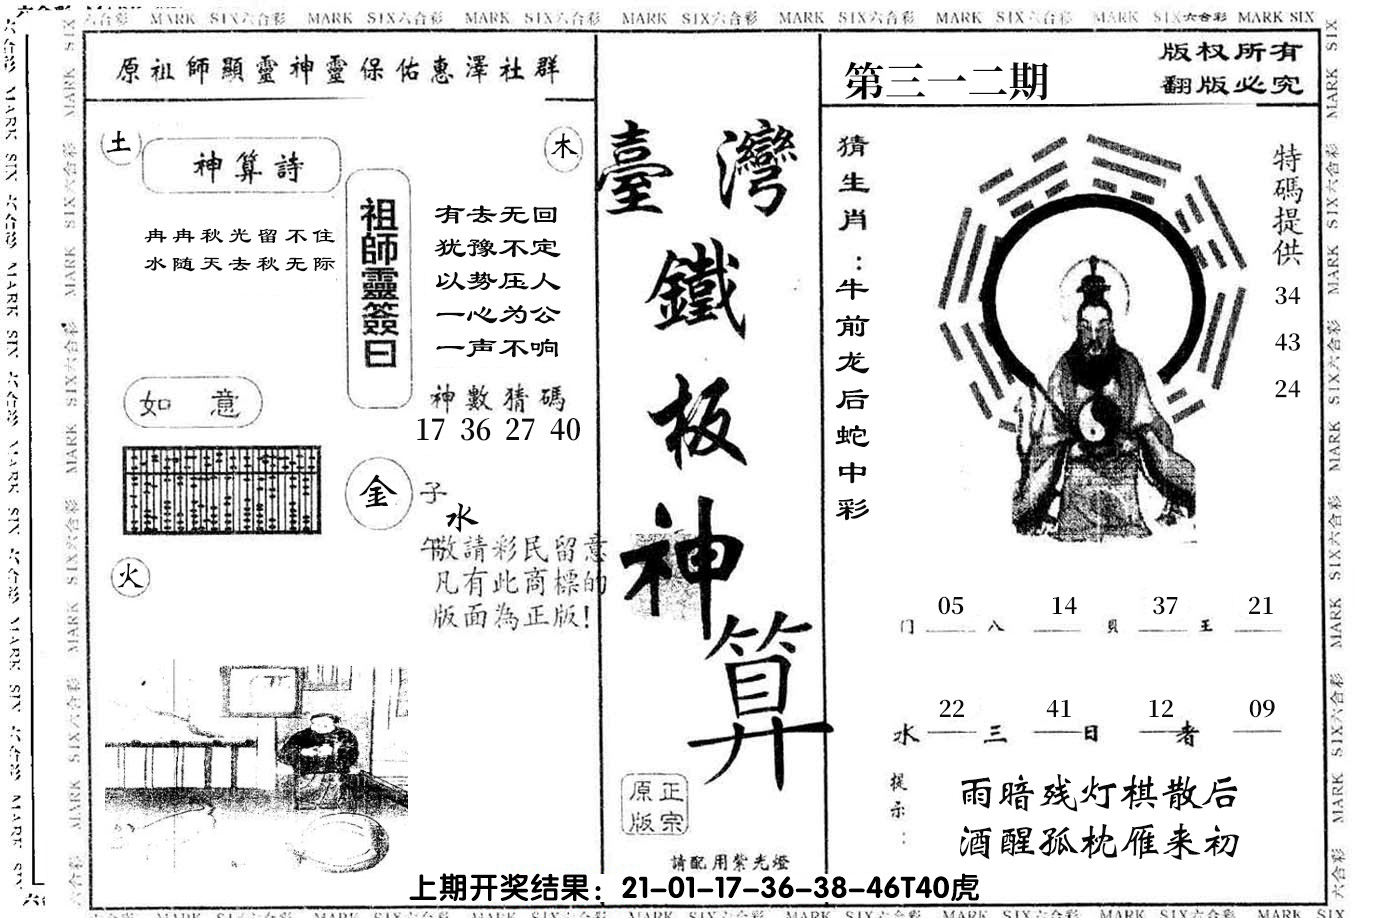 六合彩 MARK SIX六合彩 MARK SIX六合彩 MARK SIX六合彩 MARK SIX六合彩 MARK SIX六合彩 MARK SIX六合彩 MARK SIX六合彩 MARK SIX
原祖師顯靈神靈保佑惠澤社群
土
神算詩
木
冉冉秋光留不住
水随天去秋无际
祖師靈簽曰
有去无回
犹豫不定
以势压人
一心为公
一声不响
神數猜碼
17 36 27 40
如 意
金
子
水
午
敬請彩民留意
凡有此商標的
版面為正版!
火
臺灣
鐵
板
神
算
正宗
原版
請配用紫光燈
第三一二期
版权所有
翻版必究
猜生肖:牛前龙后蛇中彩
特碼提供
34
43
24
05 14 37 21
门 八 貝 王
22 41 12 09
水 三 日 者
提示:
雨暗残灯棋散后
酒醒孤枕雁来初
上期开奖结果：21-01-17-36-38-46T40虎